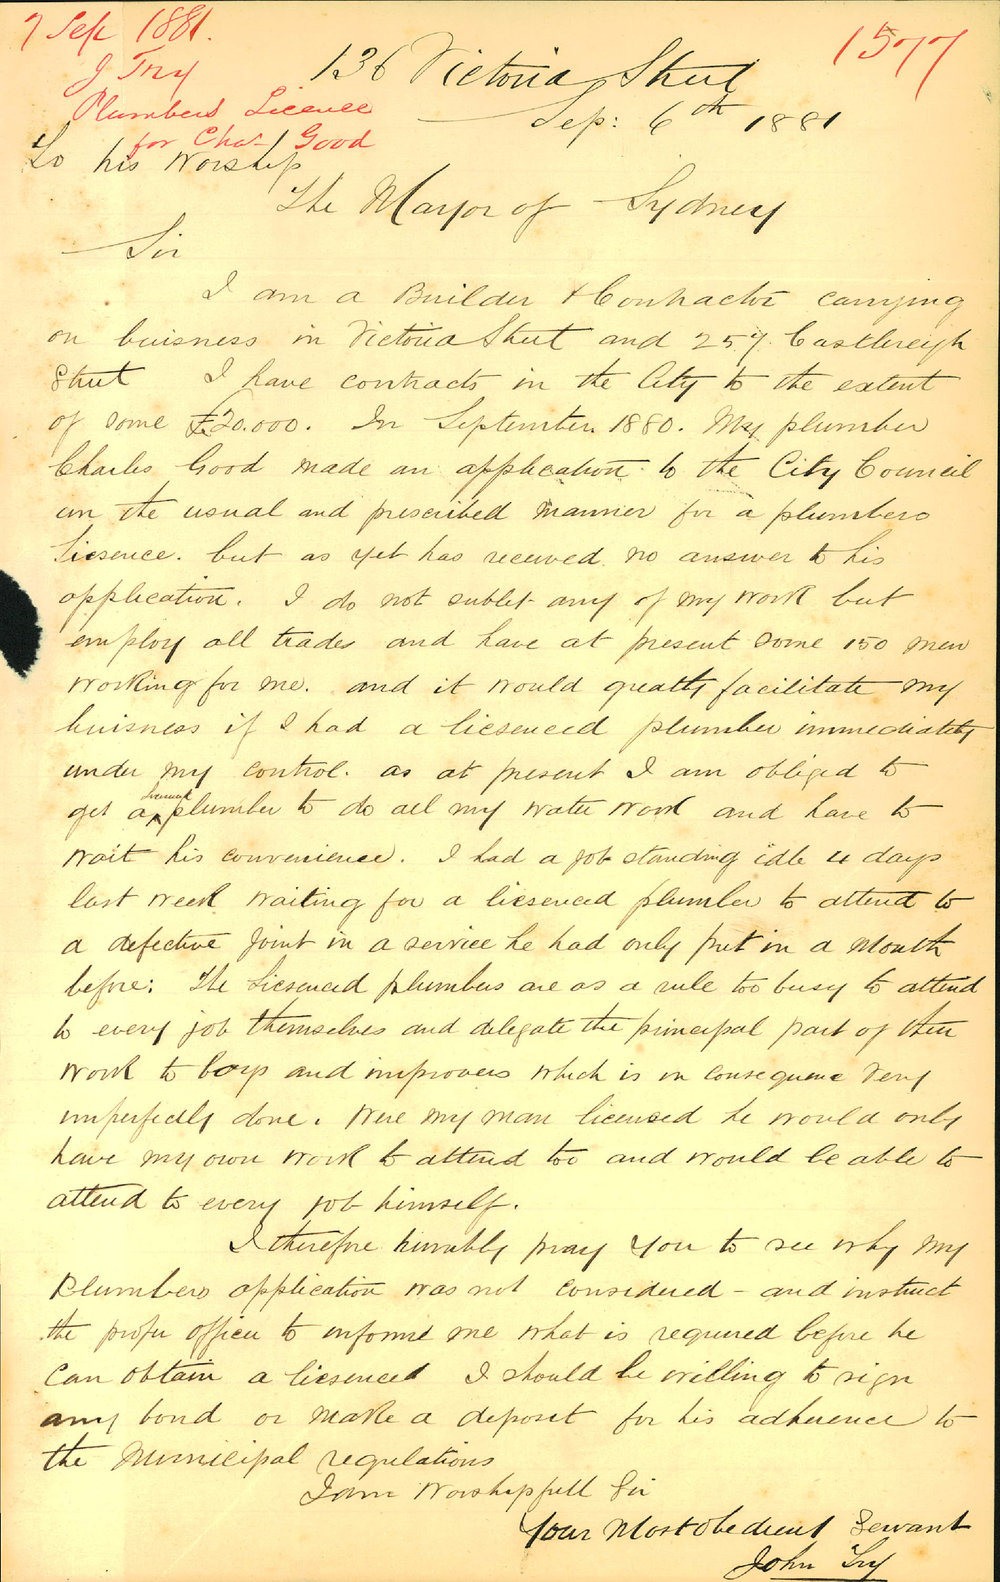 7 Sep 1881.
1577
J Try
Plumbers Licence
for Chas Good
136 Victoria Street
Sep: 6th 1881
To his Worship
The Mayor of Sydney
Sir
I am a Builder & Contractor carrying
on buisness in Victoria Street and 257 Castlereigh
Street I have contracts in the City to the extent
of some £20.000. In September 1880. My plumber
Charles Good made an application to the City Council
in the usual and prescribed manner for a plumbers
Licsence. but as yet has received no answer to his
application. I do not sublet any of my work but
employ all trades and have at present some 150 men
working for me. and it would greatly facilitate my
buisness if I had a licsenced plumber immediately
under my control. as at present I am obliged to
get a licensed plumber to do all my water work and have to
wait his convenience. I had a job standing idle 4 days
last week waiting for a licsenced plumber to attend to
a defective Joint in a service he had only put in a Month
before: The Licsenced plumbers are as a rule too busy to attend
to every job themselves and delegate the principal part of their
work to boys and improvers which is in consequence very
imperfectly done. Were my man licensed he would only
have my own work to attend too and would be able to
attend to every job himself.
I therefore humbly pray you to see why my
Plumbers application was not considered - and instruct
the proper officer to informe me what is required before he
can obtain a licsenced I should be willing to sign
any bond or make a deposit for his adherence to
the Municipal regulations
I am Worshipfull Sir
Your Most obedient Servant
John Try